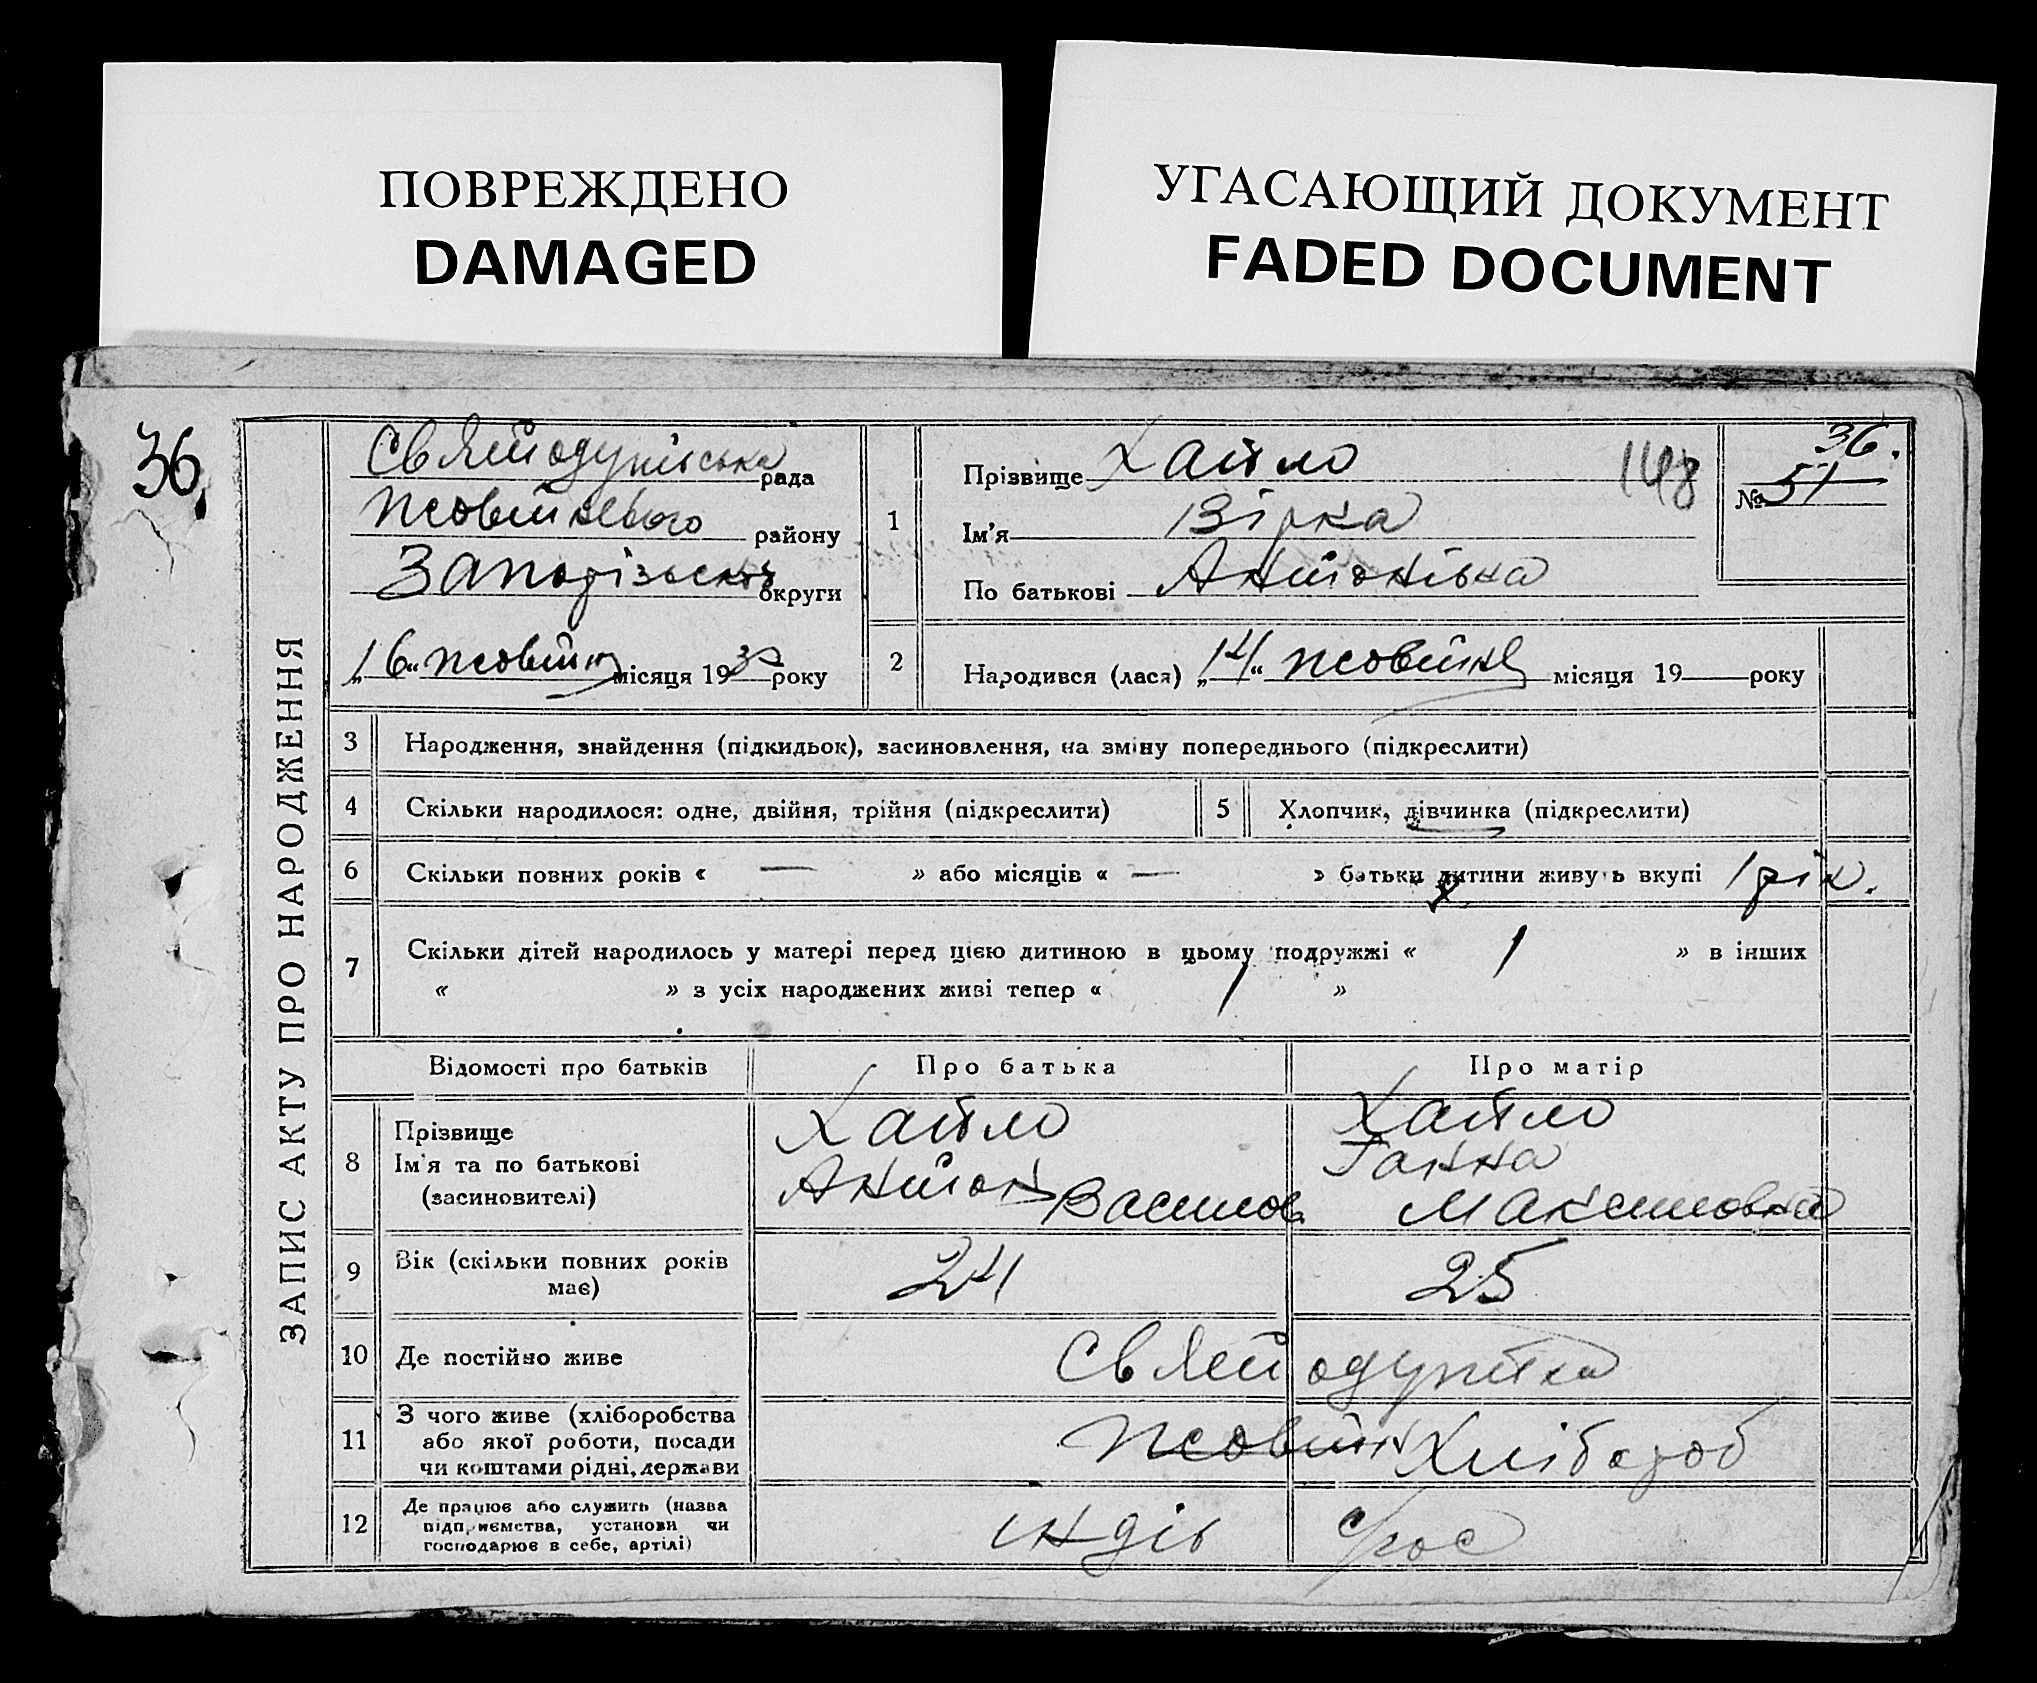 ПОВРЕЖДЕНО
DAMAGED
УГАСАЮЩИЙ ДОКУМЕНТ
FADED DOCUMENT
36,
ЗАПИС АКТУ ПРО НАРОДЖЕННЯ
Святодухівська рада
Жовтневого району
Запорізьской округи
„16“ жовтня місяця 1930 року
1
Прізвище Хайло
148
Ім'я Вірка
По батькові Антонівна
36.
№ 51
2
Народився (лася) „14“ жовтня місяця 19 року
3 Народження, знайдення (підкидьок), засиновлення, на зміну попереднього (підкреслити)
4 Скільки народилося: одне, двійня, трійня (підкреслити)
5 Хлопчик, дівчинка (підкреслити)
6 Скільки повних років « — » або місяців « — » батьки дитини живуть вкупі 1 рік.
7 Скільки дітей народилось у матері перед цією дитиною в цьому подружжі « 1 » в інших
« » з усіх народжених живі тепер « 1 »
Відомості про батьків Про батька Про матір
8 Прізвище
Ім'я та по батькові
(засиновителі)
Хайло
Антон Васильов
Хайло
Ганна
Максимовна
9 Вік (скільки повних років
має)
24 25
10 Де постійно живе
Святодухівка
11 З чого живе (хліборобства
або якої роботи, посади
чи коштами рідні, держави
Жовтн Хлібороб
12 Де працює або служить (назва
підприємства, установи чи
господарює в себе, артілі)
індів гос